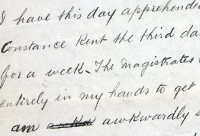 I have this day apprehende
Constance Kent the third da
for a week. The magistrates
entirely in my hands to get
am awkwardly s